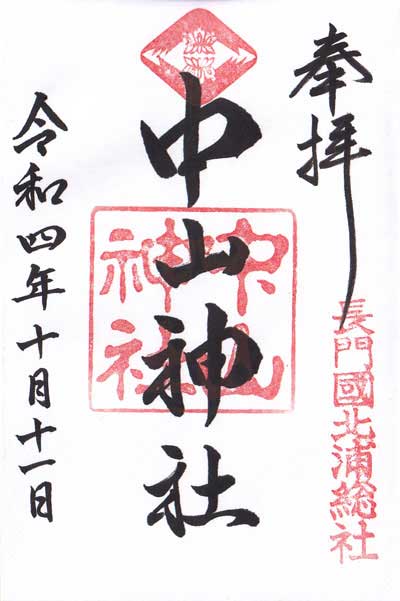 奉拝
長門國北浦総社
中山神社
中山神社
令和四年十月十一日